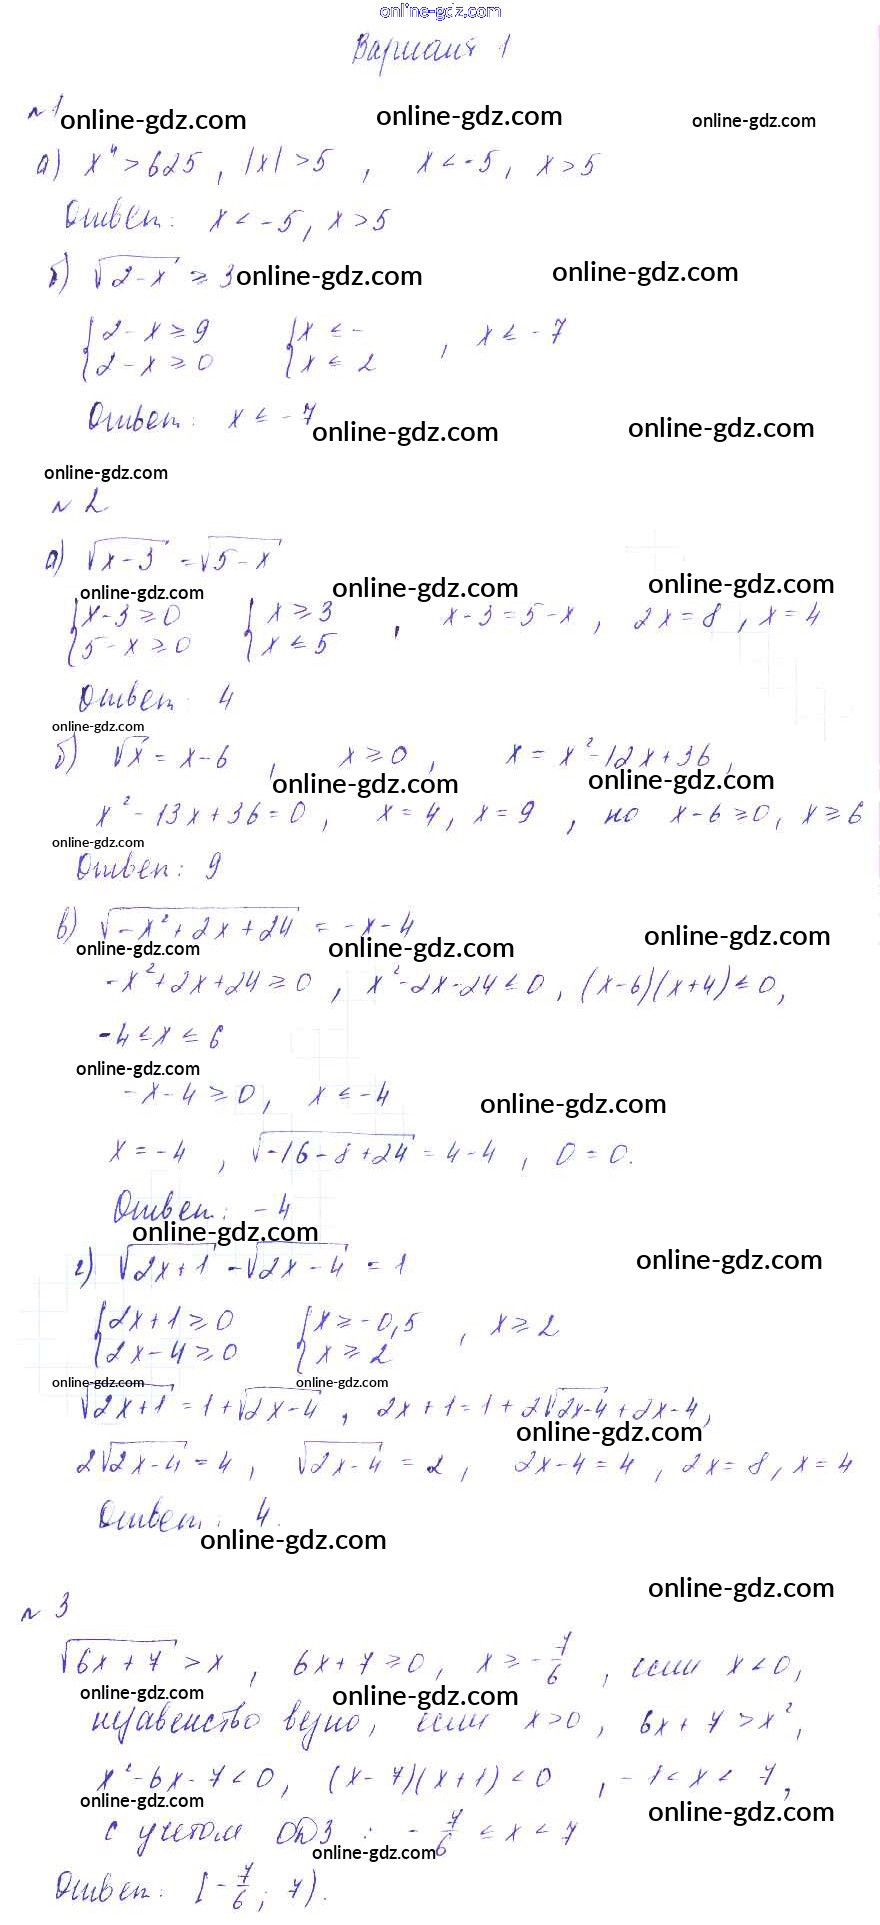 online-gdz.com
Вариант 1
№1 online-gdz.com online-gdz.com online-gdz.com
а) x⁴ > 625, |x| > 5, x < -5, x > 5
Ответ: x < -5, x > 5
б) √(2-x) ≥ 3 online-gdz.com online-gdz.com
{2-x ≥ 9 {x ≤ -
{2-x ≥ 0 {x ≤ 2 , x ≤ -7
Ответ: x ≤ -7
online-gdz.com online-gdz.com
online-gdz.com
№2
а) √(x-3) = √(5-x)
online-gdz.com online-gdz.com online-gdz.com
{x-3 ≥ 0 {x ≥ 3
{5-x ≥ 0 {x ≤ 5 , x-3=5-x, 2x=8, x=4
Ответ: 4
online-gdz.com
б) √x = x-6, x ≥ 0, x = x²-12x+36,
online-gdz.com online-gdz.com
x²-13x+36=0, x=4, x=9, но x-6 ≥ 0, x ≥ 6
online-gdz.com
Ответ: 9
в) √(-x²+2x+24) = -x-4
online-gdz.com online-gdz.com online-gdz.com
-x²+2x+24 ≥ 0, x²-2x-24 ≤ 0, (x-6)(x+4) ≤ 0,
-4 ≤ x ≤ 6
online-gdz.com
-x-4 ≥ 0, x ≤ -4
online-gdz.com
x = -4, √(-16-8+24) = 4-4, 0=0.
Ответ: -4
online-gdz.com
г) √(2x+1) - √(2x-4) = 1
online-gdz.com
{2x+1 ≥ 0 {x ≥ -0,5
{2x-4 ≥ 0 {x ≥ 2 , x ≥ 2
online-gdz.com online-gdz.com
√(2x+1) = 1+√(2x-4), 2x+1=1+2√(2x-4)+2x-4,
online-gdz.com
2√(2x-4) = 4, √(2x-4) = 2, 2x-4=4, 2x=8, x=4
Ответ: 4.
online-gdz.com
online-gdz.com
№3
√(6x+7) > x, 6x+7 ≥ 0, x ≥ -7/6, если x < 0,
online-gdz.com online-gdz.com
неравенство верно, если x > 0, 6x+7 > x²,
x²-6x-7 < 0, (x-7)(x+1) < 0, -1 < x < 7,
online-gdz.com online-gdz.com
с учетом ОДЗ: -7/6 ≤ x < 7
online-gdz.com
Ответ: [-7/6; 7).